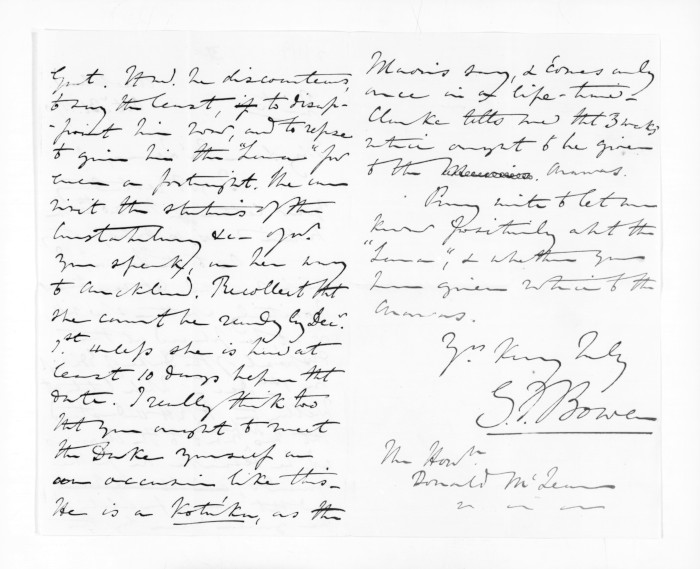 Govt. It wd. be discourteous,
to say the least, if to disap-
-point him now, and to refuse
to give him the "Luna" for
even a fortnight. She can
visit the stations of the
Constabulary &c - of wh.
you speak, on her way
to Auckland. Recollect tht
she cannot be ready by Decr.
1st. unless she is here at
least 10 days before tht
date. I really think too
tht you ought to meet
the Duke yourself on
an occasion like this -
He is a Kotuku, as the
Maoris say, & comes only
once in a life-time -
Clarke tells me tht 3 weeks
notice ought to be given
to the Arawas.
Pray write & let me
know positively abt the
"Luna", & whether you
have given notice to the
Arawas.
Yrs. very truly
G.F. Bowen
The Honble.
Donald McLean